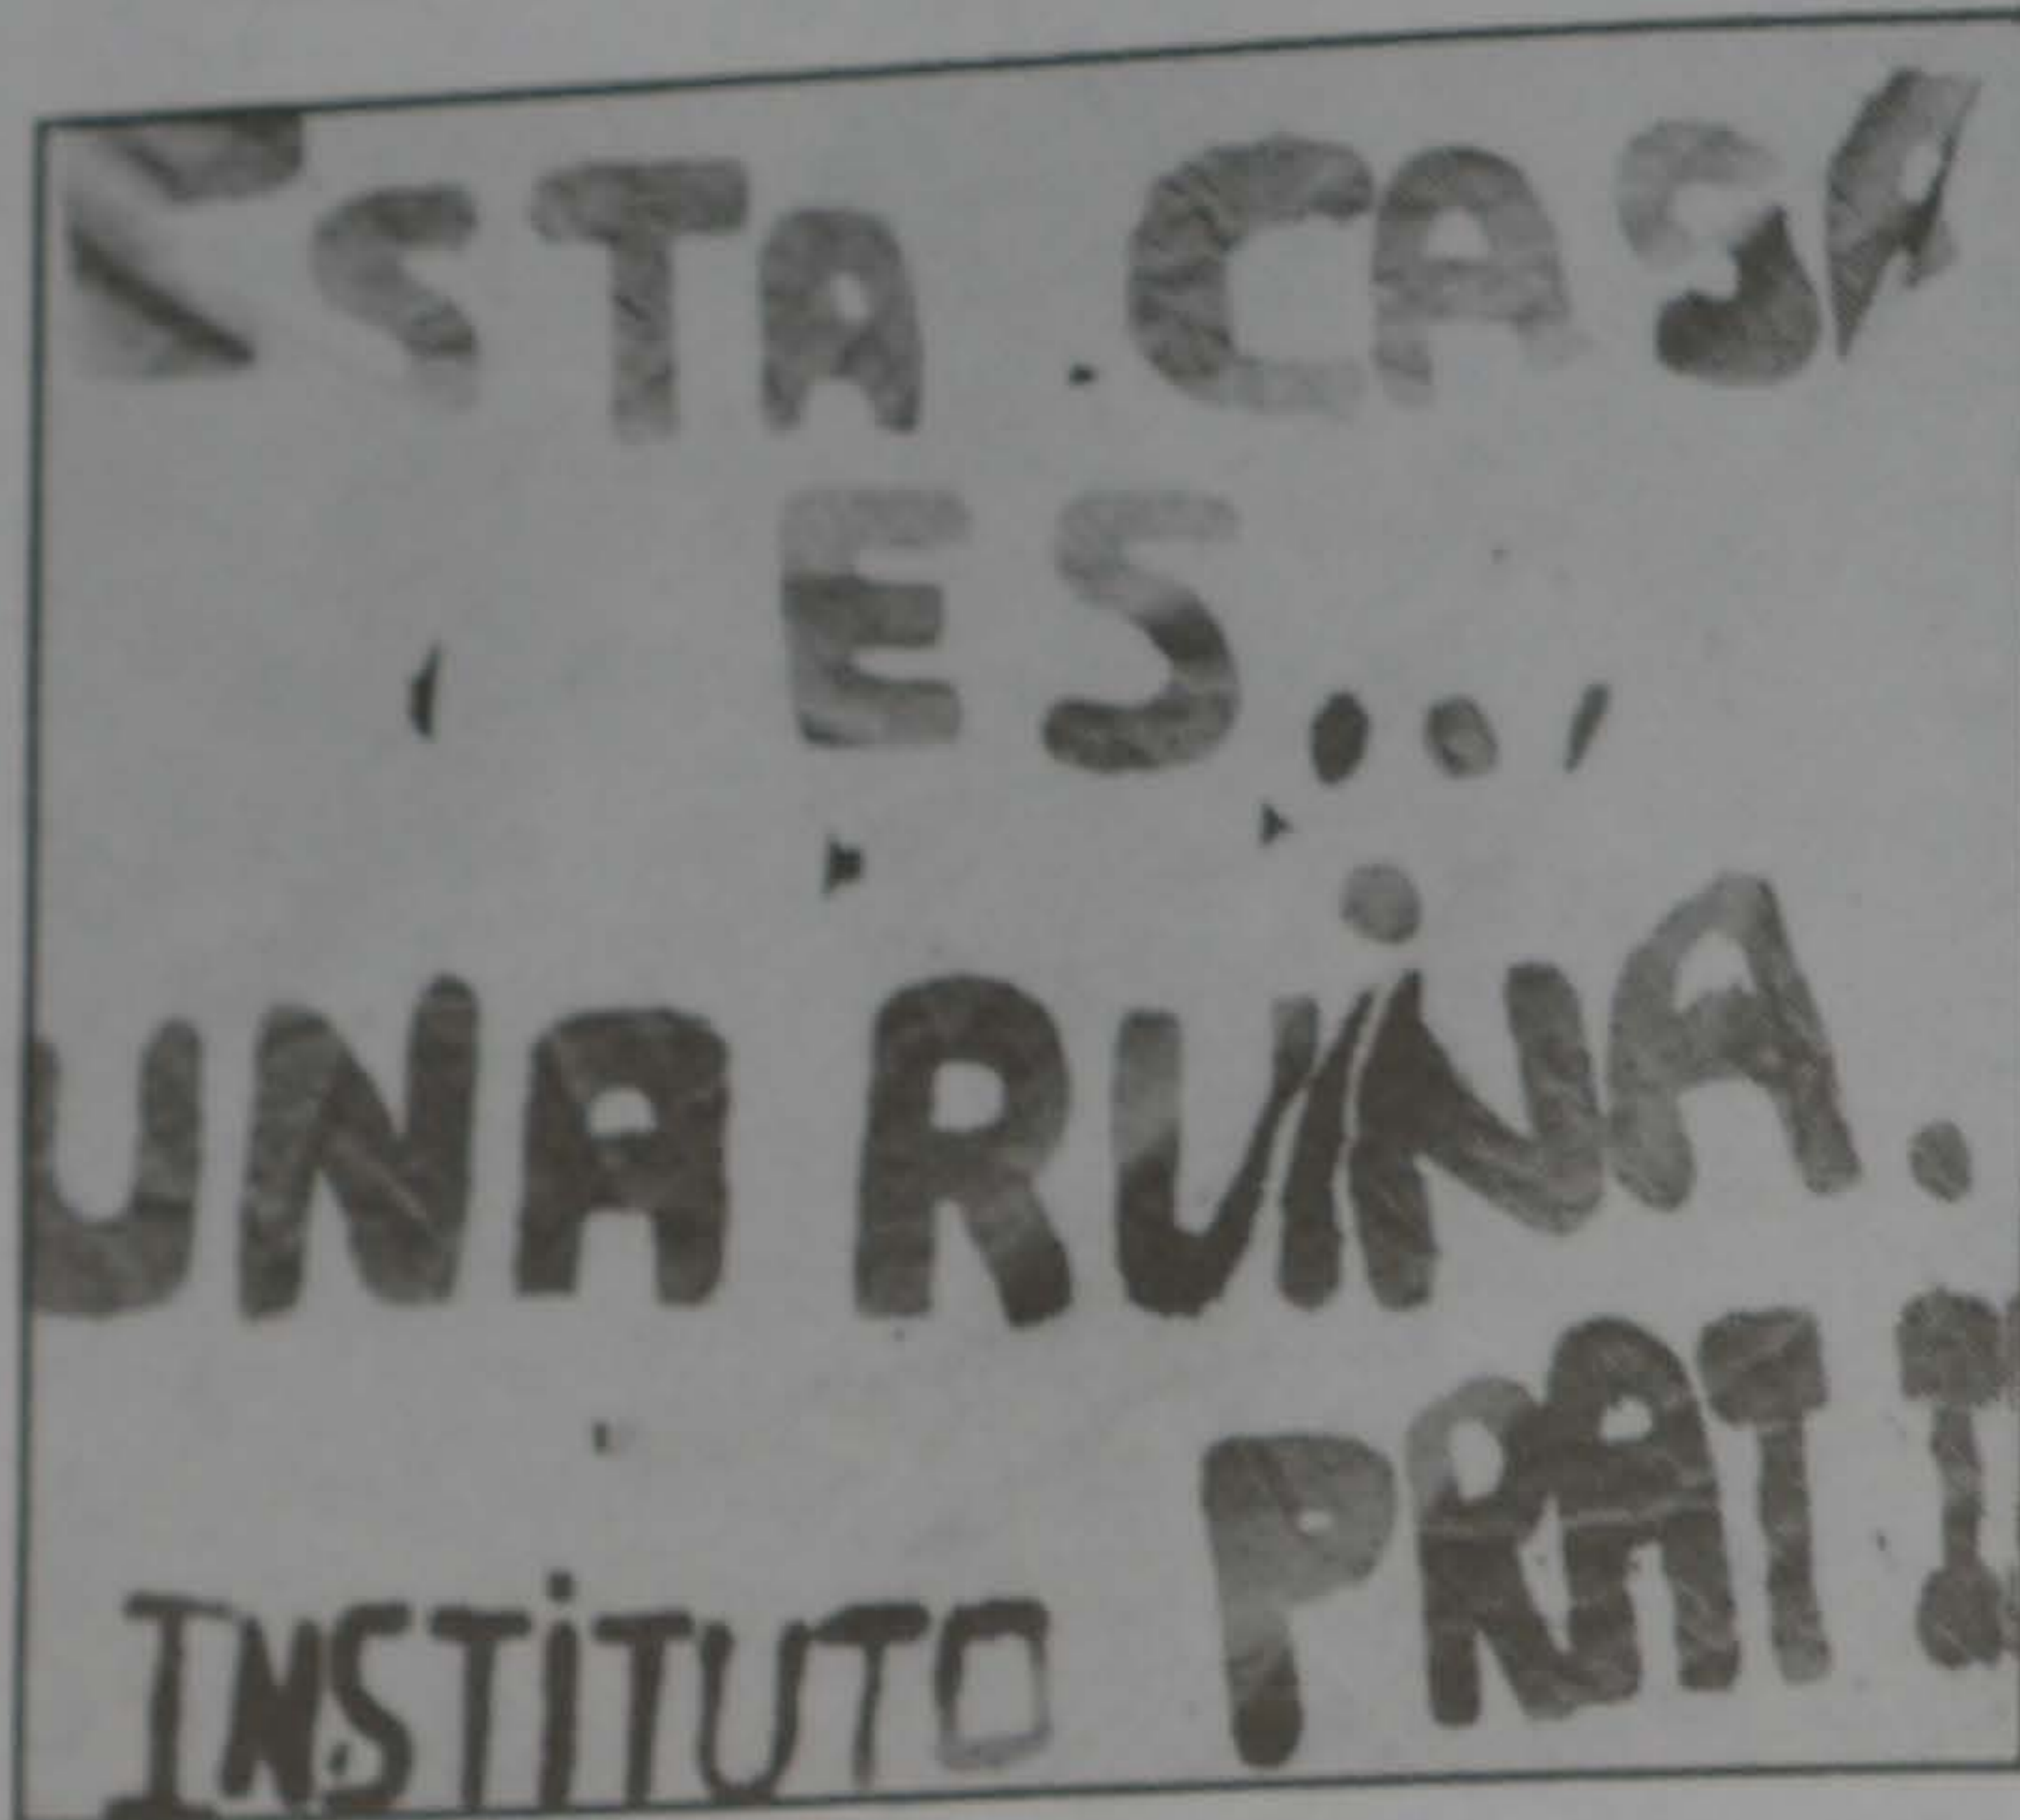 ESTA CASA
ES...
UNA RUiNA.
INSTiTUTO PRAT